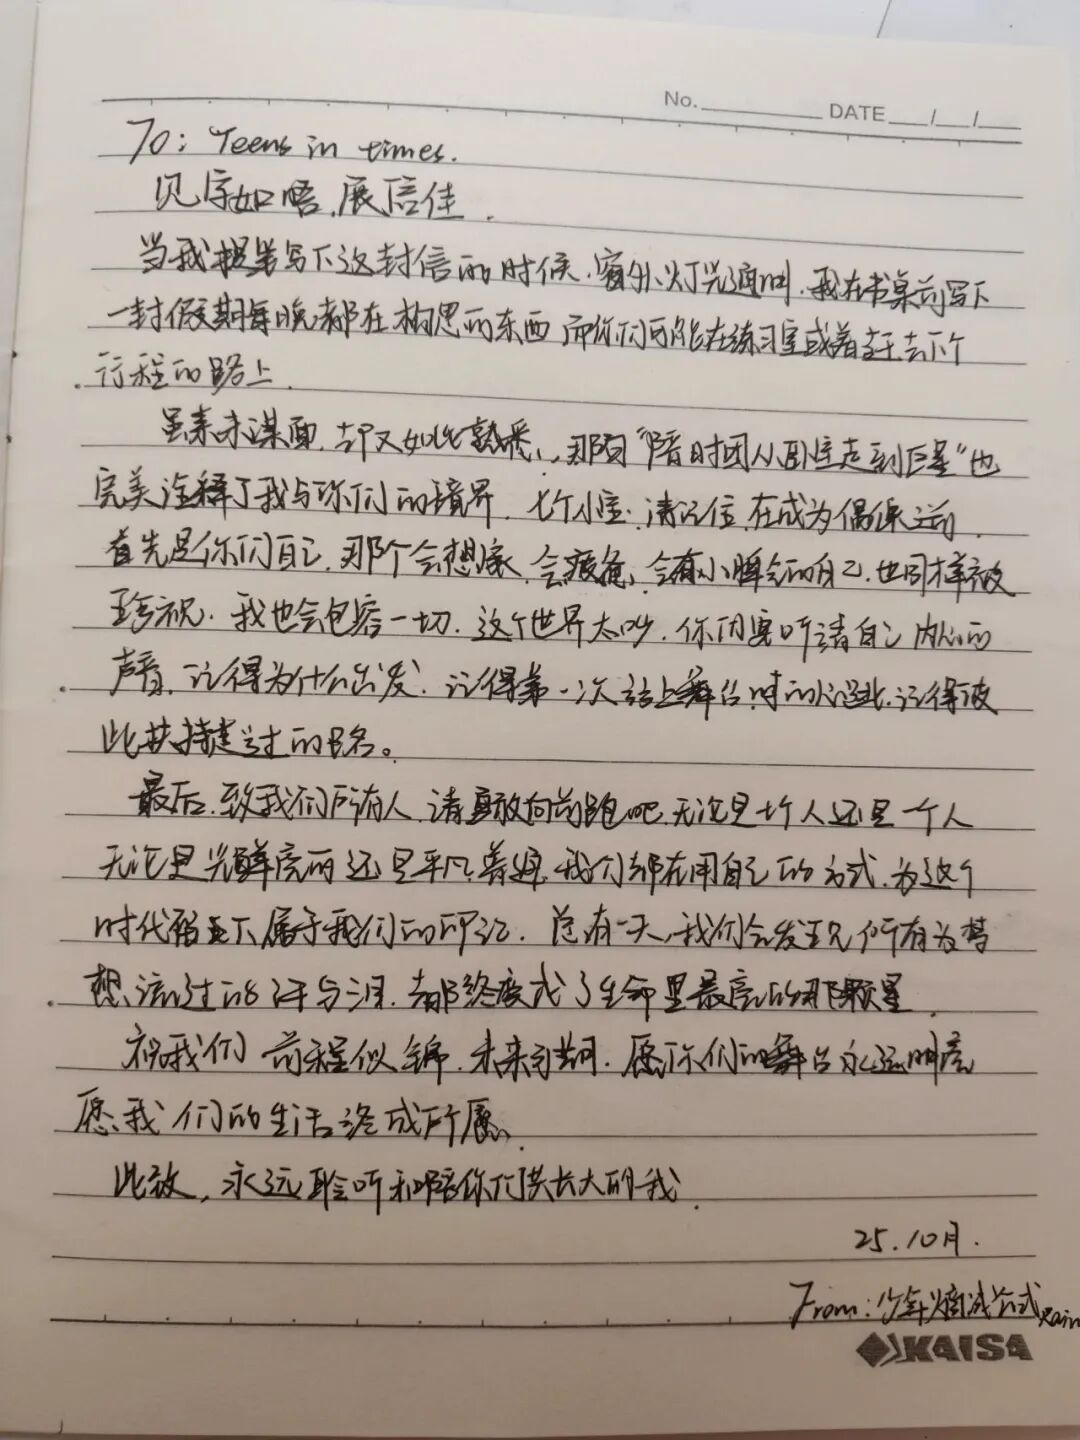 No. DATE / /
To: Teens in times.
见字如晤,展信佳.
当我提笔写下这封信的时候,窗外灯光通明,我在书桌前写下
一封假期每晚都在构思的东西而你们可能在练习室或着去下个
行程的路上.
虽素未谋面,却又如此熟悉,那句"陪时团从卧室走到巨星"也
完美诠释了我与你们的境界,七个小宝,请记住,在成为偶像之前
首先是你们自己,那个会想家,会疲惫,会有小脾气的自己,也同样被
珍视,我也会包容一切,这个世界太吵,你们要听清自己内心的
声音,记得为什么出发,记得第一次站上舞台时的,记得彼
此扶持走过的路。
最后,致我们所有人,请勇敢向前跑吧,无论是七个人还是一个人
无论是光鲜亮丽还是平凡普通,我们都在用自己的方式,为这个
时代留下属于我们的印记,总有一天,我们会发现所有为梦
想流过的汗与泪,都终变成了生命里最亮的那颗星
祝我们 前程似锦,未来可期,愿你们的舞台永远明亮
愿我们的生活终成所愿,
此致,永远聆听和陪你们共长大的我.
25.10月.
From:少年熵减公式Rain
KAISA